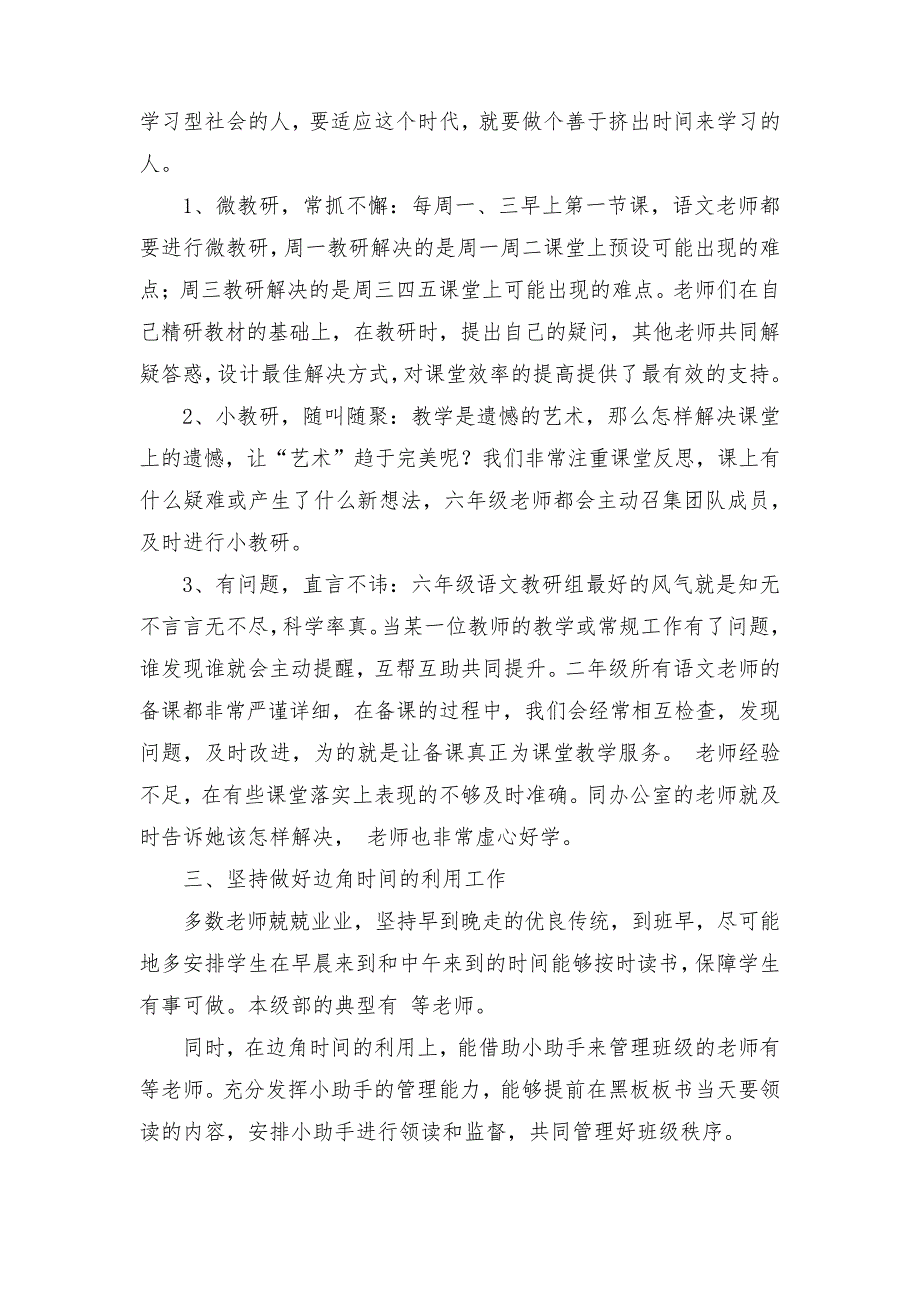 学习型社会的人，要适应这个时代，就要做个善于挤出时间来学习的
人。
1、微教研，常抓不懈：每周一、三早上第一节课，语文老师都
要进行微教研，周一教研解决的是周一周二课堂上预设可能出现的难
点；周三教研解决的是周三四五课堂上可能出现的难点。老师们在自
己精研教材的基础上，在教研时，提出自己的疑问，其他老师共同解
疑答惑，设计最佳解决方式，对课堂效率的提高提供了最有效的支持。
2、小教研，随叫随聚：教学是遗憾的艺术，那么怎样解决课堂
上的遗憾，让“艺术”趋于完美呢？我们非常注重课堂反思，课上有
什么疑难或产生了什么新想法，六年级老师都会主动召集团队成员，
及时进行小教研。
3、有问题，直言不讳：六年级语文教研组最好的风气就是知无
不言言无不尽，科学率真。当某一位教师的教学或常规工作有了问题，
谁发现谁就会主动提醒，互帮互助共同提升。二年级所有语文老师的
备课都非常严谨详细，在备课的过程中，我们会经常相互检查，发现
问题，及时改进，为的就是让备课真正为课堂教学服务。 老师经验
不足，在有些课堂落实上表现的不够及时准确。同办公室的老师就及
时告诉她该怎样解决， 老师也非常虚心好学。
三、坚持做好边角时间的利用工作
多数老师兢兢业业，坚持早到晚走的优良传统，到班早，尽可能
地多安排学生在早晨来到和中午来到的时间能够按时读书，保障学生
有事可做。本级部的典型有 等老师。
同时，在边角时间的利用上，能借助小助手来管理班级的老师有
等老师。充分发挥小助手的管理能力，能够提前在黑板板书当天要领
读的内容，安排小助手进行领读和监督，共同管理好班级秩序。